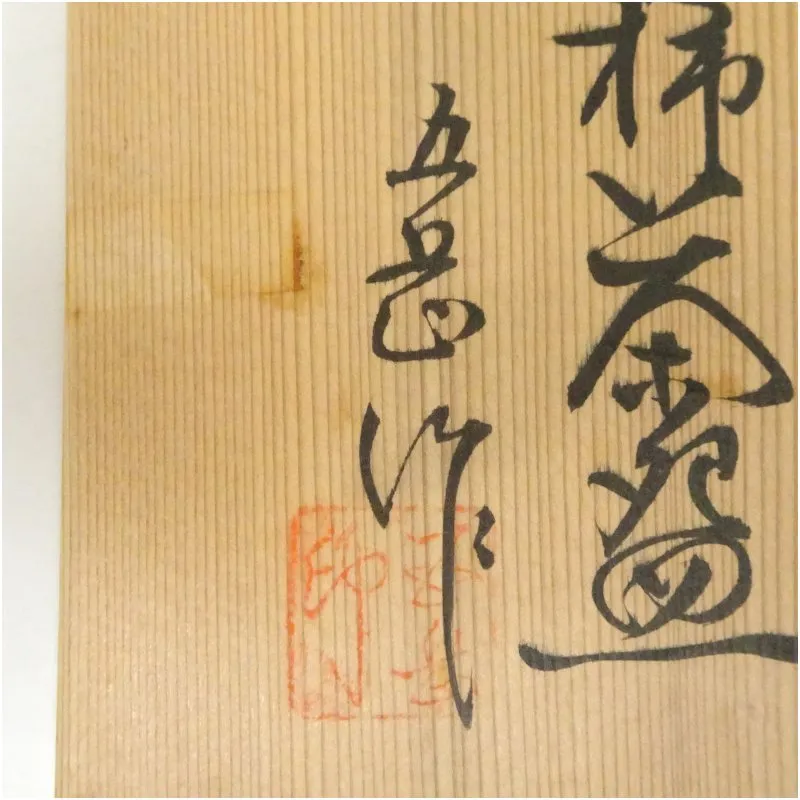 柿茶盌
五岳作